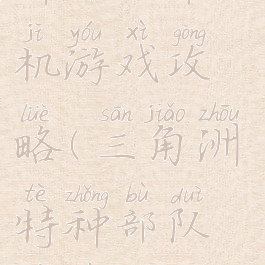 jī yóu xì gōng
机游戏攻
lüè sān jiǎo zhōu
略(三角洲
tè zhǒng bù duì
特种部队